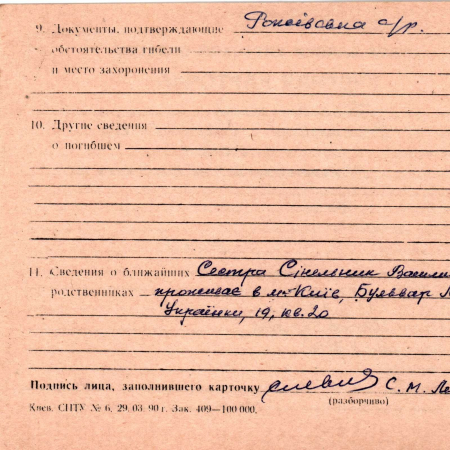 9. Документы, подтверждающие с/р.
обстоятельства гибели
и место захоронения
10. Другие сведения
о погибшем
11. Сведения о ближайших Сестра Сінельник Васили
родственниках проживає в м. Київ, Бульвар Л
Українки, 19, кв. 20
Подпись лица, заполнившего карточку С. М. Ле
(разборчиво)
Киев. СПТУ № 6, 29. 03. 90 г. Зак. 409—100 000.